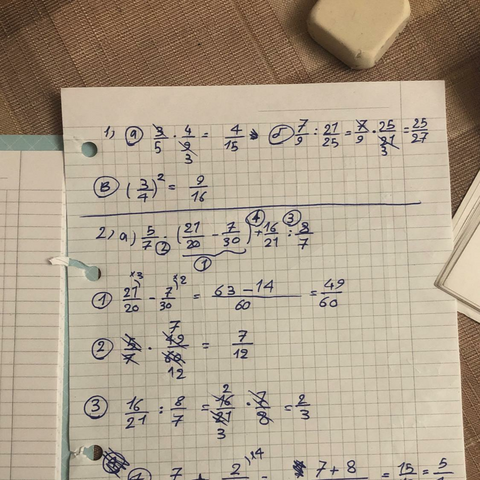 1) а) 3/5 · 4/9 = 4/15 б) 7/9 : 21/25 = 7/9 · 25/21 = 25/27
3 3
в) (3/4)² = 9/16
2) а) 5/7 · (21/20 - 7/30) + 16/21 : 8/7
② ① ④ ③
① 21/20 ×3 - 7/30 ×2 = 63-14/60 = 49/60
② 5/7 · 49/60 = 7/12
7 12
③ 16/21 : 8/7 = 16/21 · 7/8 = 2/3
2 3
7 + 2 )14 = 7+8 = 15 = 5